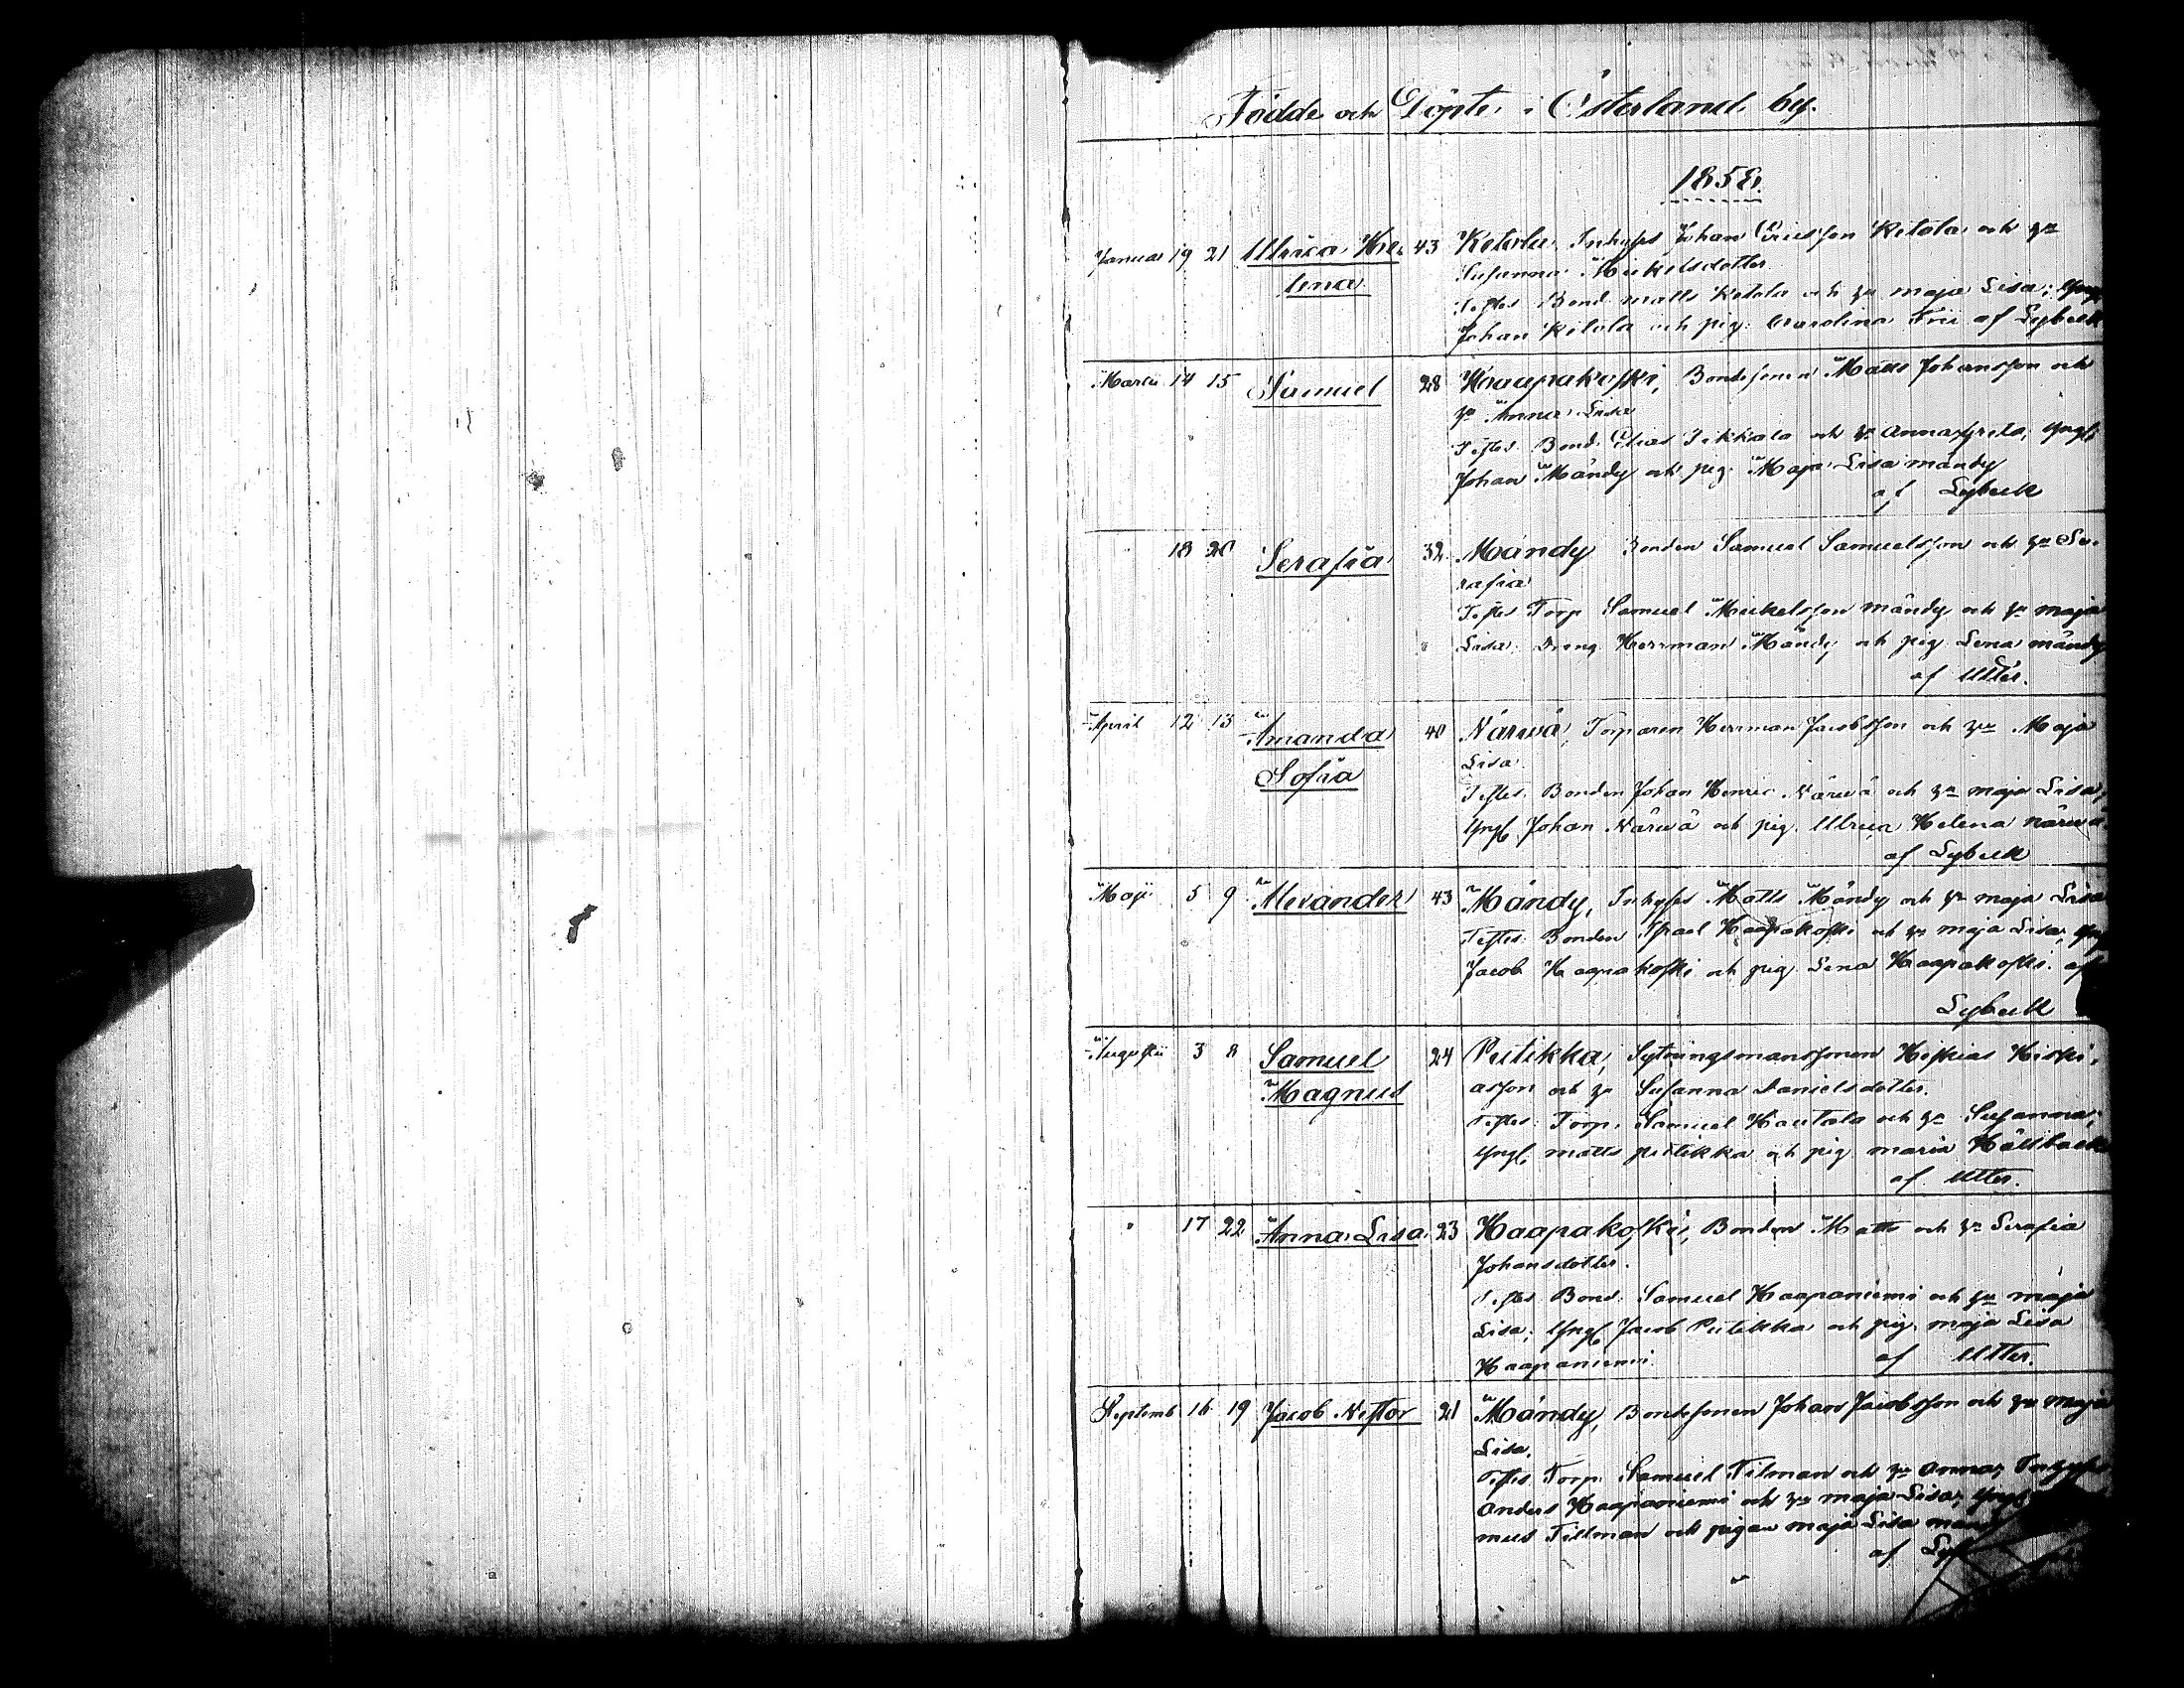 Födde och Döpte i Österland by.
1858.
Januar 19 21 Ulrica He- 43 Ketola Inhyses Johan Ericsson Ketola och hu
lena Susanna Mickelsdotter
Testes Bond. Matts Ketola och hu Maja Lisa; Yngl
Johan Ketola och pig. Carolina Frii af Lybeck
Martii 14 15 Samuel 28 Haapakoski, Bondesonen Matts Johansson och
hu Anna Lisa
Testes Bond. Elias Jekkala och hu Anna Greta, Yngl.
Johan Mändy och pig. Maja Lisa Mändy
af Lybeck
18 20 Serafia 32 Mändy Bonden Samuel Samuelsson och hu Se-
rafia
Testes Torp Samuel Mickelsson Mändy och hu Maja
Lisa; Dreng Herrman Mändy och pig Lena Mändy
af Utter.
April 12 13 Amanda 40 Närwä, Torparen Herrman Jacobsson och hu Maja
Sofia Lisa
Testes. Bonden Johan Henric Närwä och hu Maja Lisa;
Yngl Johan Närwä och pig. Ulrica Helena Närwä
af Lybeck
Maji 5 9 Alexander 43 Mändy, Inhyses Matts Mändy och hu Maja Lisa
Testes Bonden Israel Haapakoski och hu Maja Lisa; Yngl
Jacob Haapakoski och pig Lena Haapakoski. af
Lybeck
Augustii 3 8 Samuel 24 Putikka, Sytningsmanssonen Heskias Heski-
Magnus asson och hu Susanna Danielsdotter.
Testes Torp. Samuel Hautala och hu Susanna;
Yngl. Matts Putikka och pig Maria Hällback
af Utter.
" 17 22 Anna Lisa 23 Haapakoski, Bonden Matts och hu Serafia
Johansdotter.
Testes Bond. Samuel Haapaniemi och hu Maja
Lisa; Yngl Jacob Putikka och pig. Maja Lisa
Haapaniemi af Utter.
Septemb 16 19 Jacob Nestor 21 Mändy, Bondesonen Johan Jacobsson och hu Maja
Lisa.
Testes Torp. Samuel Tilman och hu Anna; Inhyses
Anders Haapaniemi och hu Maja Lisa; Yngl
mus Tillman och pigan Maja Lisa Mändy
af Lyb